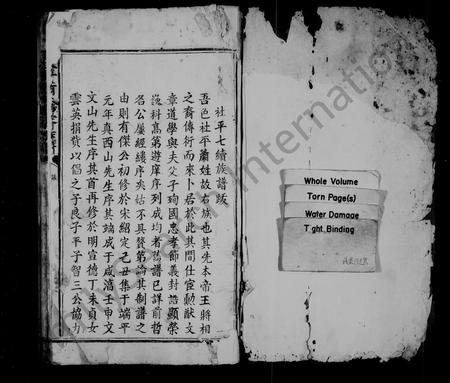 社平七續族譜跋
吾邑社平蕭姓故右族也其先本帝王將相
之裔傳衍而來卜居於此其間仕宦勳猷文
章道學與夫父子殉國忠孝節義封誥顯榮
巍科高第遊庠序列成均者舊譜已詳前哲
名公屢經縷序矣姑不具贅第論其制譜之
由則有傑公初修於宋紹定己丑集于端平
元年真西山先生序其端成于咸淳壬申文
文山先生序其首再修於明宣德丁未貞女
雲英捐貲以倡之于良子平子智三公協力
Whole Volume
Torn Page(s)
Water Damage
Tight Binding